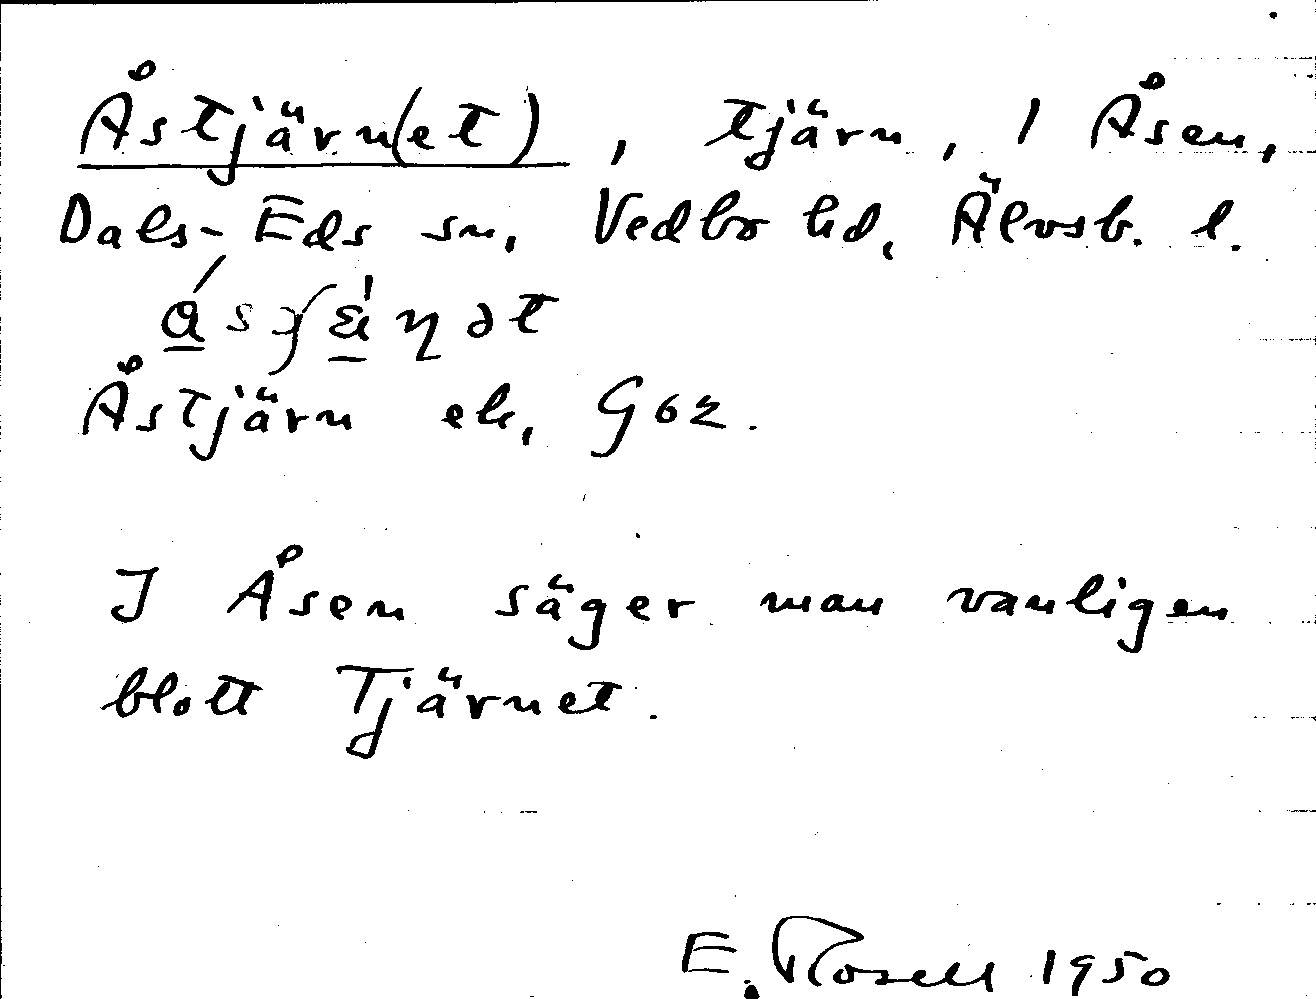 Åstjärn(et), tjärn, 1 Åsen,
Dals-Eds sn, Vedbo hd, Älvsb. l.
Åstjärn ek,
I Åsen säger man vanligen
blott Tjärnet.
E. Rosell 1950